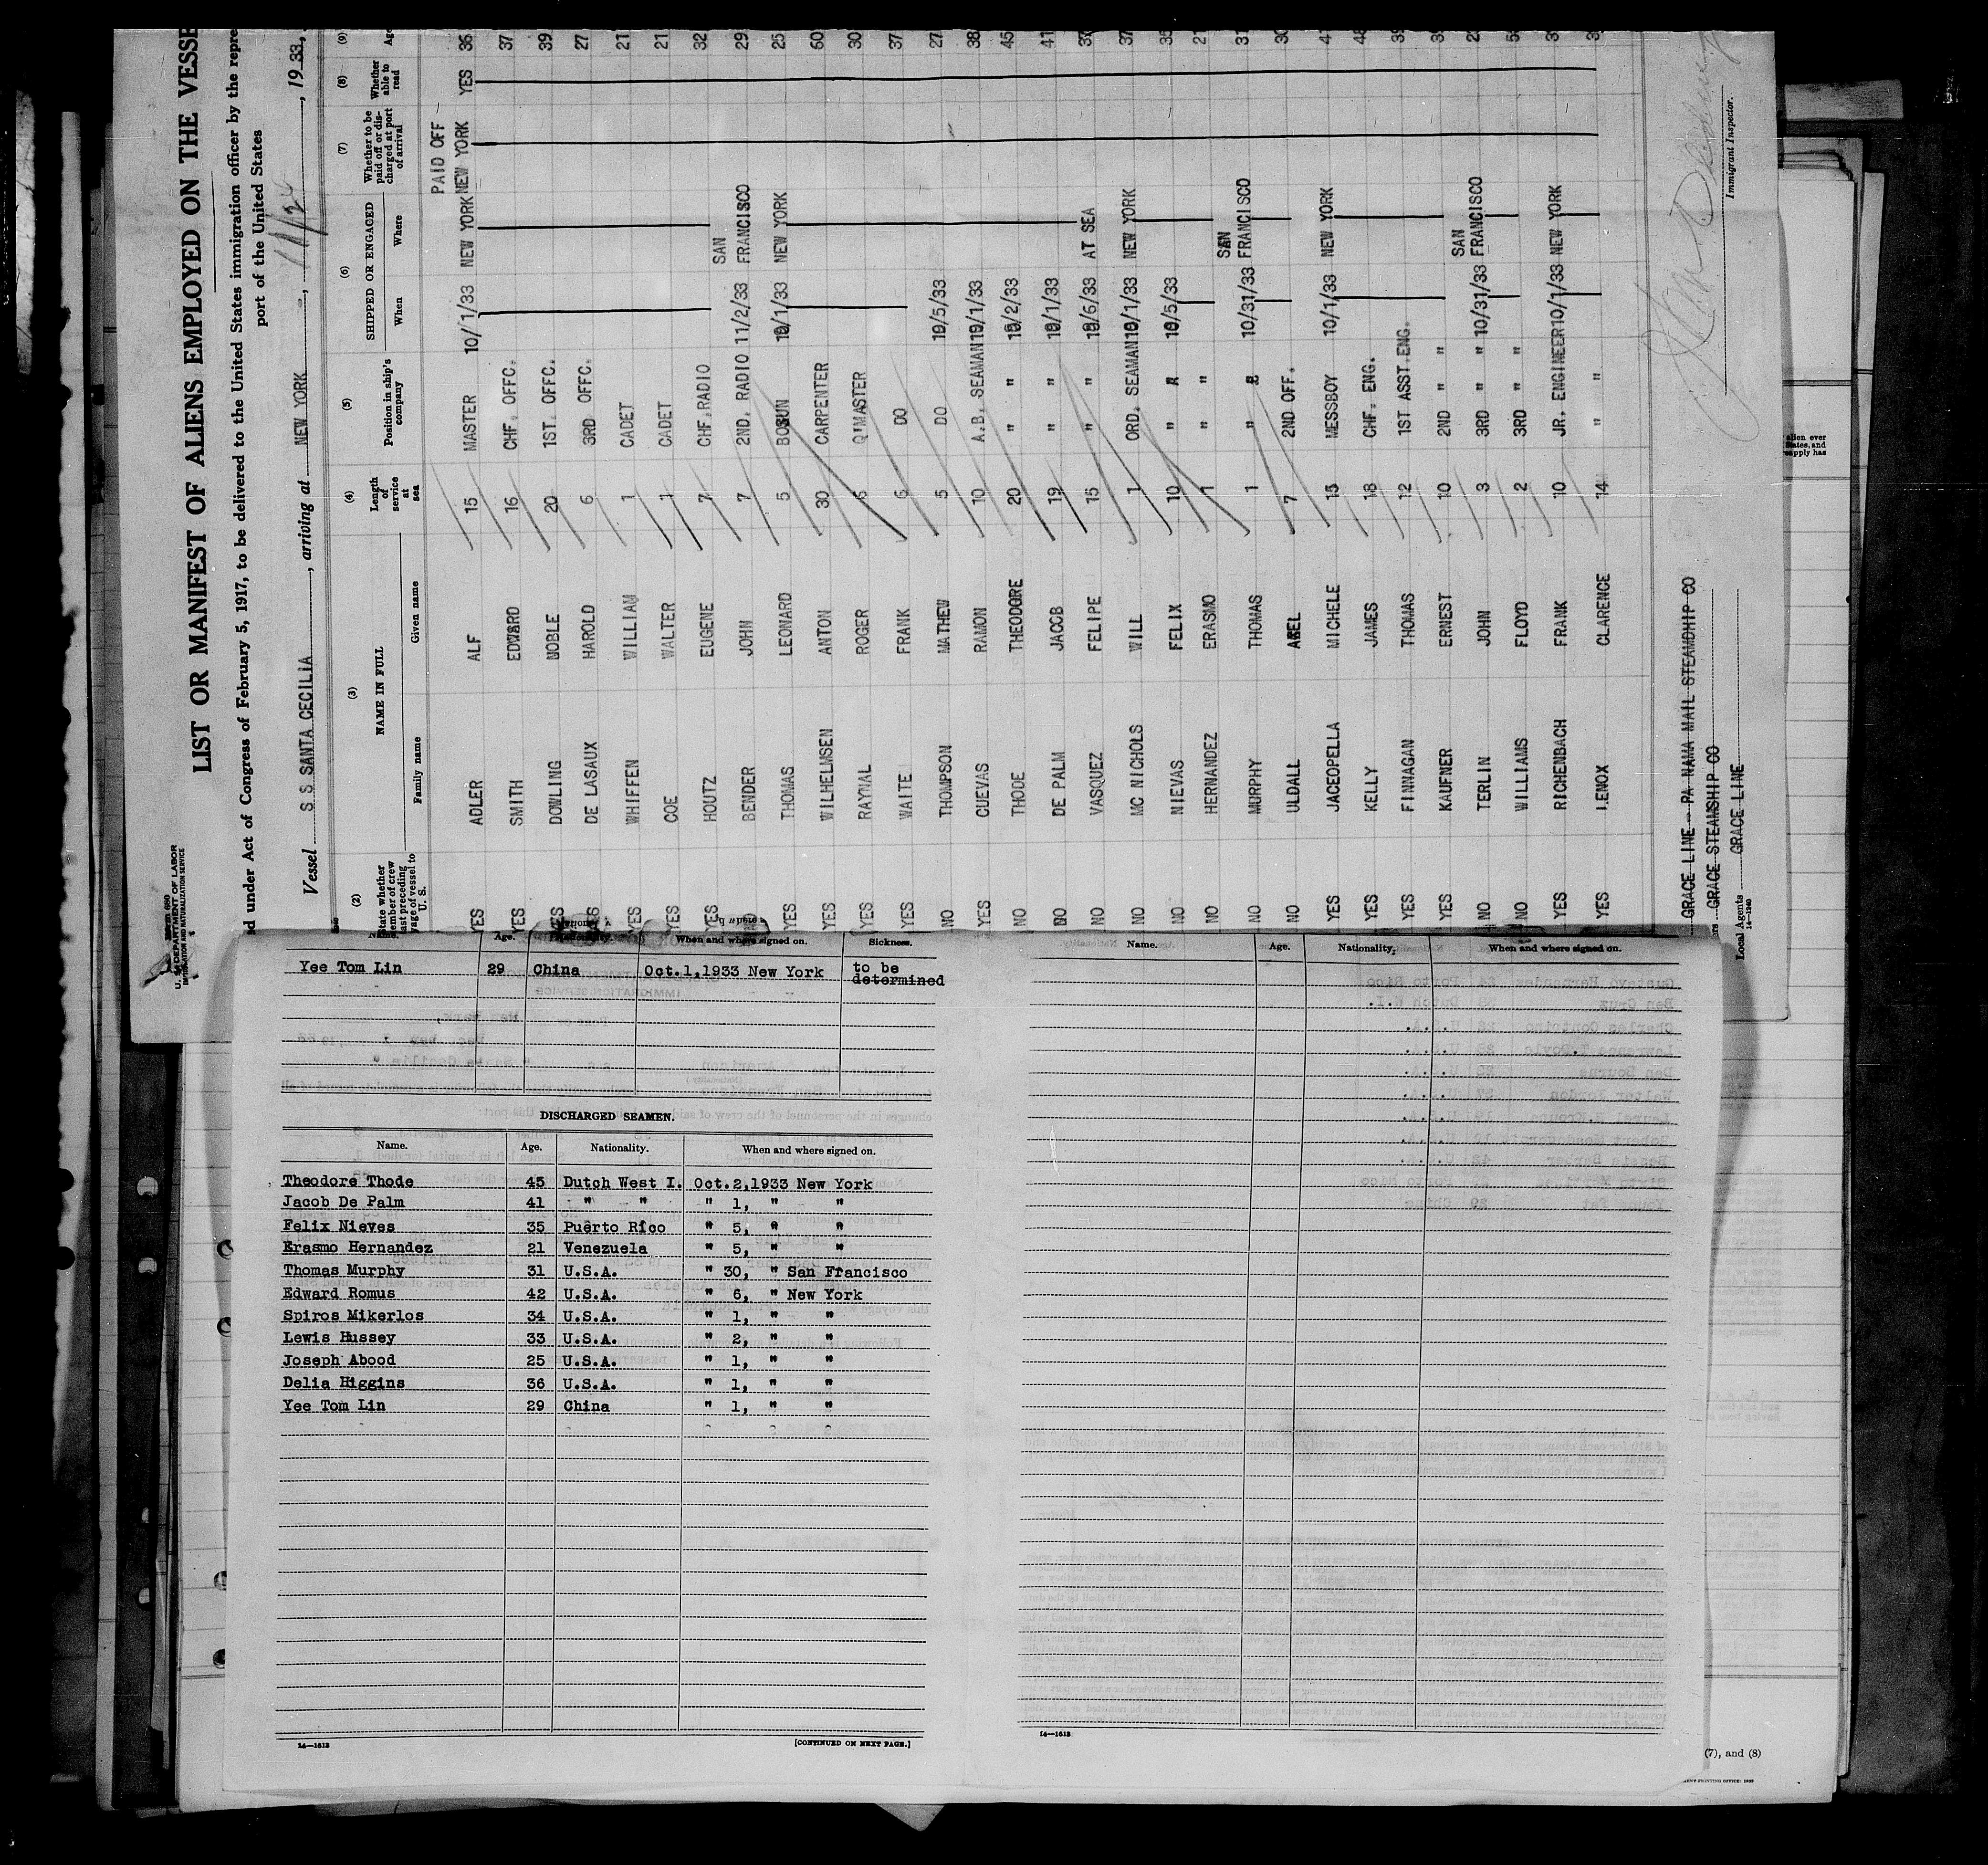 LIST OR MANIFEST OF ALIENS EMPLOYED ON THE VESSE
ed under Act of Congress of February 5, 1917, to be delivered to the United States immigration officer by the repre
port of the United States
U. S. DEPARTMENT OF LABOR
IMMIGRATION AND NATURALIZATION SERVICE
Vessel S S SANTA CECILIA, arriving at NEW YORK, 11/24, 1933,
(2) (3) (4) (5) (6) (7) (8) (9)
State whether member of crew last preceding voyage of vessel to U. S. NAME IN FULL Family name Given name Length of service at sea Position in ship's company SHIPPED OR ENGAGED When Where Whether to be paid off or discharged at port of arrival Whether able to read Age
PAID OFF
YES ADLER ALF 15 MASTER 10/1/33 NEW YORK NEW YORK YES 36
YES SMITH EDWARD 16 CHF. OFFC. 37
YES DOWLING NOBLE 20 1ST. OFFC. 39
YES DE LASAUX HAROLD 6 3RD OFFC. 27
YES WHIFFEN WILLIAM 1 CADET 21
YES COE WALTER 1 CADET 21
YES HOUTZ EUGENE 7 CHF.RADIO 32
BENDER JOHN 7 2ND. RADIO 11/2/33 SAN FRANCISCO 29
YES THOMAS LEONARD 5 BOSUN 10/1/33 NEW YORK 25
YES WILHELMSEN ANTON 30 CARPENTER 60
YES RAYNAL ROGER 6 Q'MASTER 30
YES WAITE FRANK 6 DO 37
NO THOMPSON MATHEW 5 DO 10/5/33 27
YES CUEVAS RAMON 10 A.B. SEAMAN 10/1/33 38
NO THODE THEODORE 20 " " 10/2/33 45
NO DE PALM JACOB 19 " " 10/1/33 41
NO VASQUEZ FELIPE 15 " " 10/6/33 AT SEA
NO MC NICHOLS WILL 1 ORD. SEAMAN 10/1/33 NEW YORK 37
NO NIEVAS FELIX 10 " " 10/5/33 35
NO HERNANDEZ ERASMO 1 " " 21
NO MURPHY THOMAS 1 " " 10/31/33 SAN FRANCISCO 31
NO ULDALL ABEL 7 2ND OFF. 30
YES JACEOPELLA MICHELE 15 MESSBOY 10/1/33 NEW YORK
YES KELLY JAMES 18 CHF. ENG.
YES FINNAGAN THOMAS 12 1ST ASST.ENG.
YES KAUFNER ERNEST 10 2ND " "
NO TERLIN JOHN 3 3RD " " 10/31/33 SAN FRANCISCO
NO WILLIAMS FLOYD 2 3RD " "
YES RICHENBACH FRANK 10 JR. ENGINEER 10/1/33 NEW YORK
YES LENOX CLARENCE 14 " "
GRACE LINE - PA NAMA MAIL STEAMDHIP CO
GRACE STEAMSHIP CO
Local Agents GRACE LINE
14—1240
Immigrant Inspector.
Name. Age. Nationality. When and where signed on. Sickness.
Yee Tom Lin 29 China Oct.1,1933 New York to be determined
DISCHARGED SEAMEN.
Name. Age. Nationality. When and where signed on.
Theodore Thode 45 Dutch West I. Oct.2,1933 New York
Jacob De Palm 41 " " " 1, " "
Felix Nieves 35 Puerto Rico " 5, " "
Erasmo Hernandez 21 Venezuela " 5, " "
Thomas Murphy 31 U.S.A. " 30, " San Francisco
Edward Romus 42 U.S.A. " 6, " New York
Spiros Mikerlos 34 U.S.A. " 1, " "
Lewis Hussey 33 U.S.A. " 2, " "
Joseph Abood 25 U.S.A. " 1, " "
Delia Higgins 36 U.S.A. " 1, " "
Yee Tom Lin 29 China " 1, " "
14—1613
[CONTINUED ON NEXT PAGE.]
Name. Age. Nationality. When and where signed on.
14—1613
(7), and (8)
alien ever
States, and